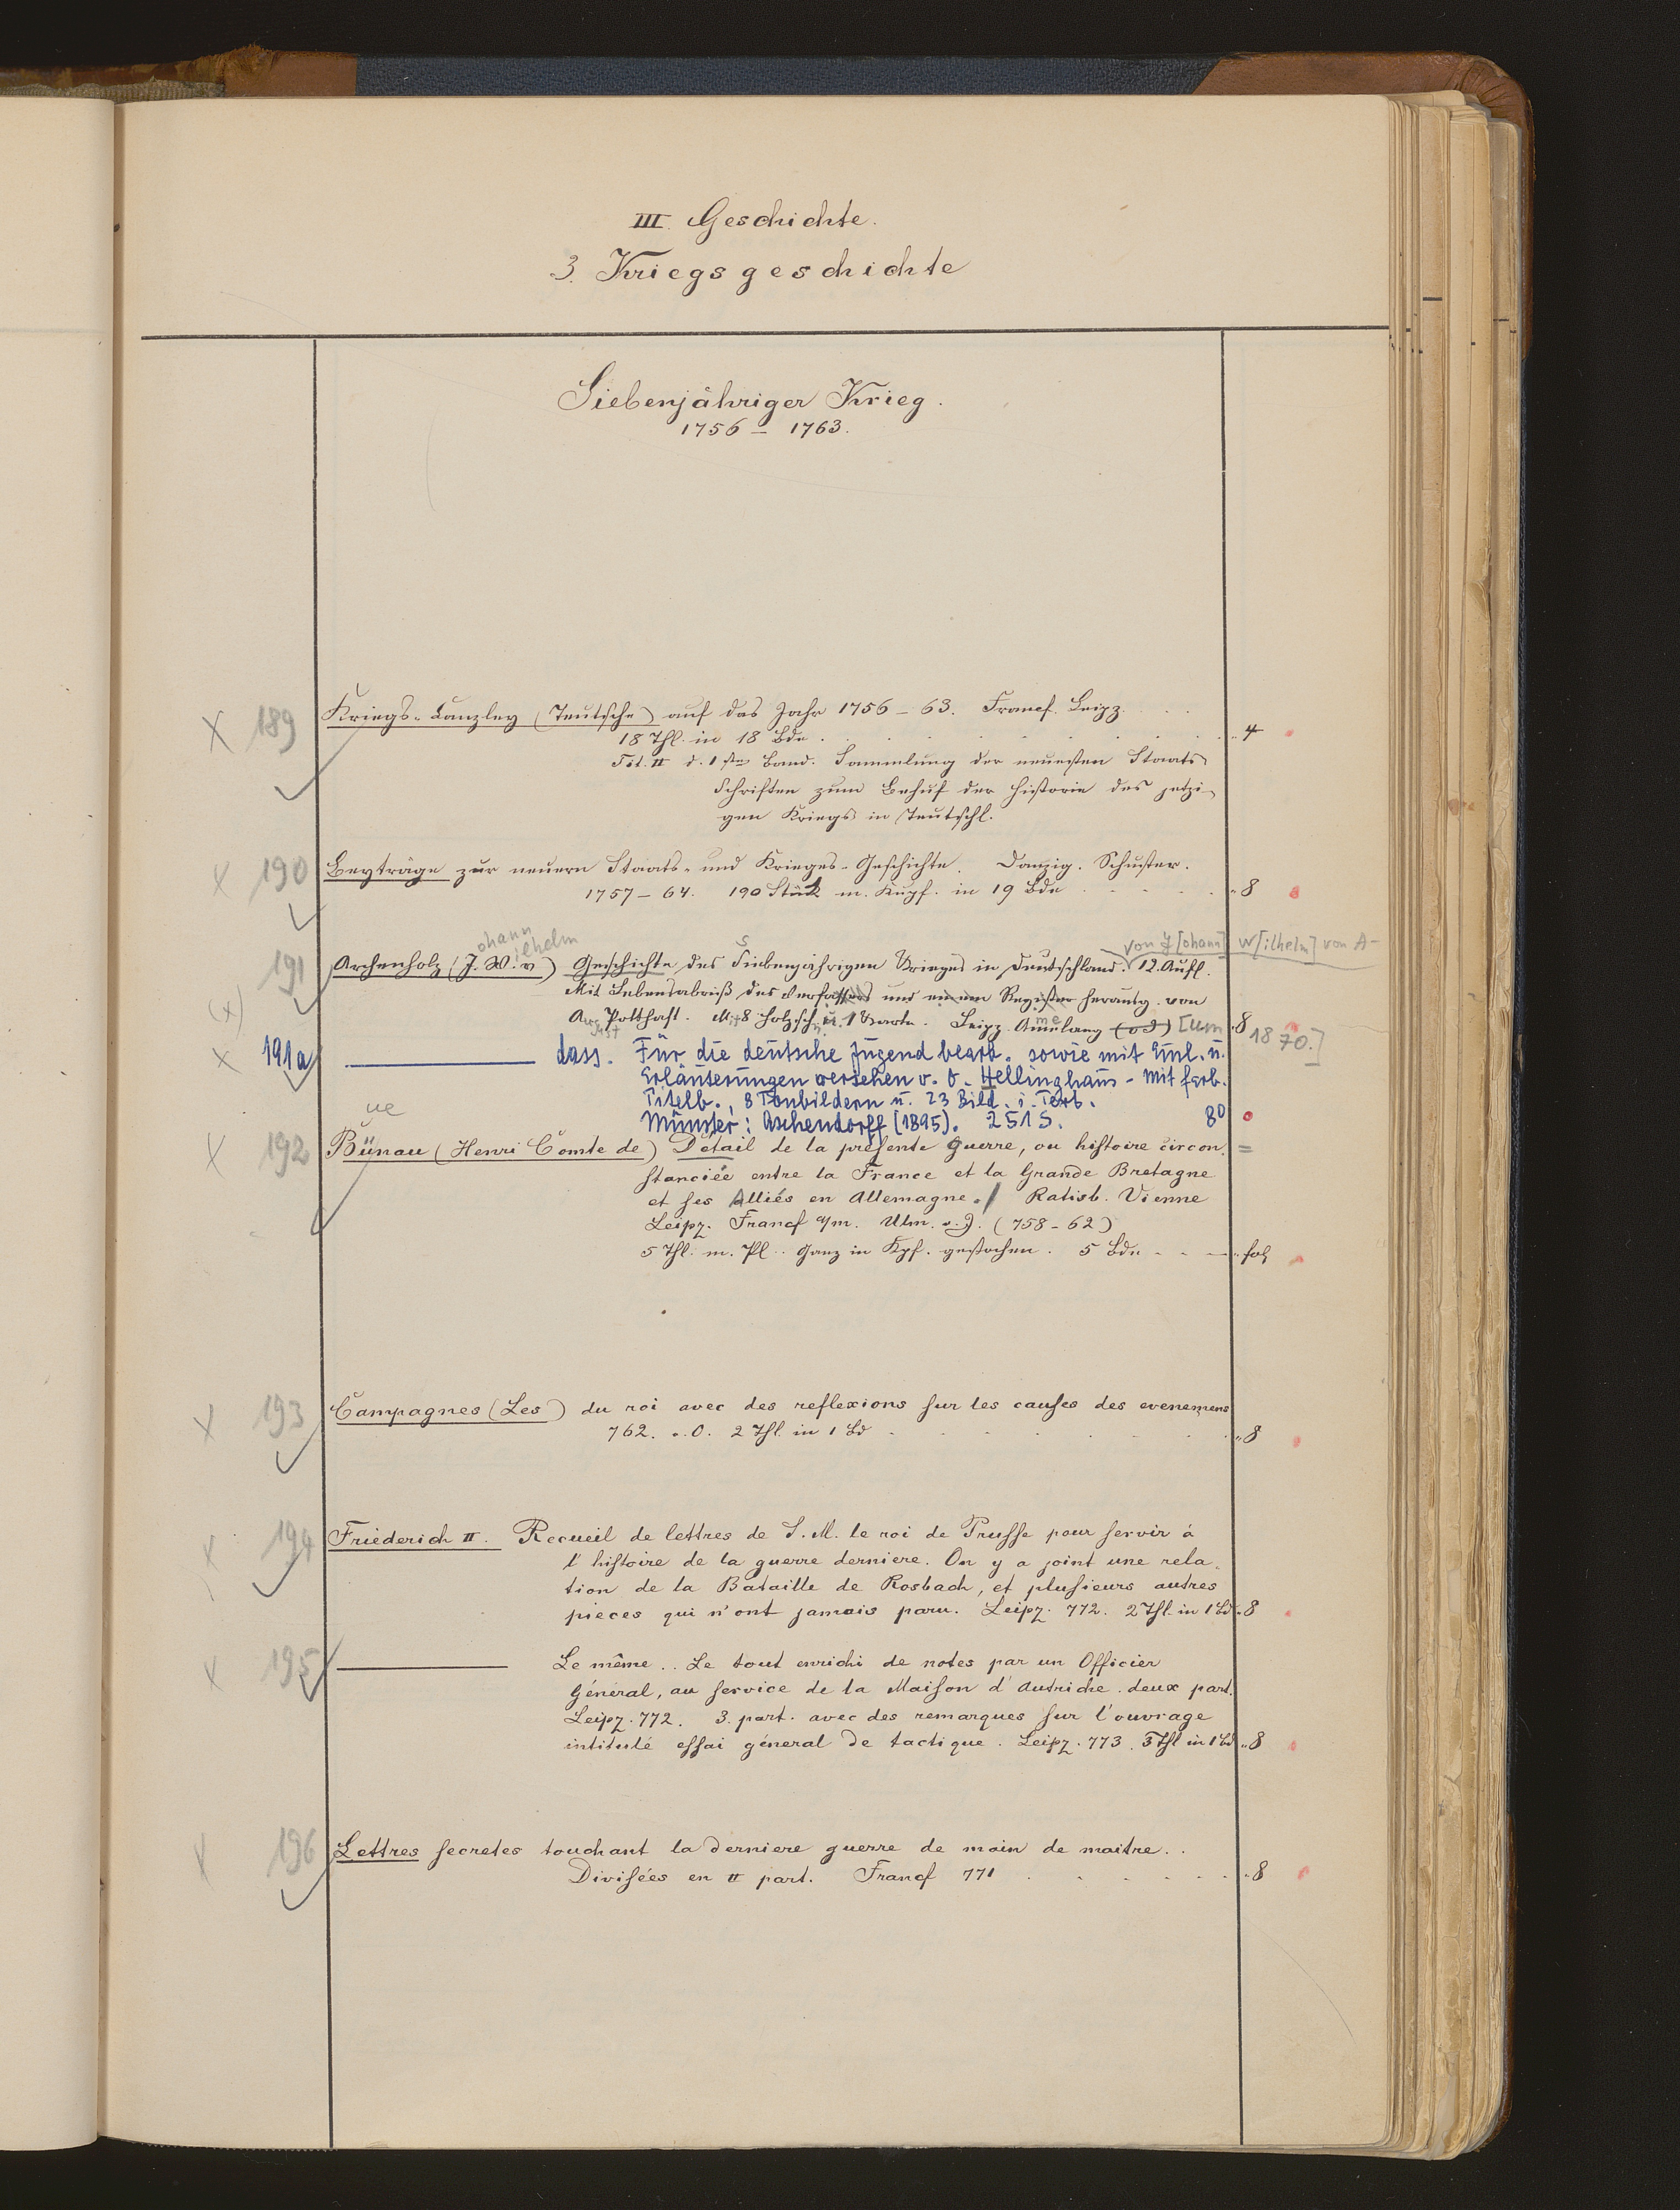 III. Geschichte.
3. Kriegsgeschichte
Siebenjähriger Krieg.
1756 – 1763.
X 189 Kriegs-Canzley (Teutsche) auf das Jahr 1756 – 63. Francf. Leipz.
18 Thl. in 18 Bde. 4
Tit. II d. 1sten Band. Sammlung der neuesten Staats
Schriften zum Behuf der Historie des jetzi-
gen Kriegs in Teutschl.
X 190 Beyträge zur neuern Staats- und Krieges-Geschichte. Danzig. Schuster.
1757 – 64. 190 Stück m. Kupf. in 19 Bde 8
ohann ilhelm S von J[ohann] W[ilhelm] von A-
191 Archenholz (J. W. v) Geschichte des Siebenjährigen Krieges in Deutschland. 12. Aufl.
(x) Mit Lebensabriß des Verfassers und einem Register herausg. von
Aug. Potthast. Mit 8 Holzsch. u. 1 Karte. Leipz. Amelang (o J) [um 1870.] 8
x 191a ——— dass. Für die deutsche Jugend bearb. sowie mit Einl. u.
Erläuterungen versehen v. O. Hellinghaus - Mit farb.
Titelb., 8 Tonbildern u. 23 Bild. i. Text.
Münster: Aschendorff [1895]. 251 S. 8°
ue
X 192 Bünau (Henri Comte de) Detail de la presente Guerre, ou histoire circon =
stanciée entre la France et la Grande Bretagne
et ses Alliés en Allemagne. / Ratisb. Vienne
Leipz. Francf a/m. Ulm. o. J. (758 – 62)
5 Thl. m. Pl.. Ganz in Kpf. gestochen. 5 Bde fol
X 193 Campagnes (Les) du roi avec des reflexions sur les causes des evenemens
762. o. O. 2 Thl. in 1 Bd 8
X 194 Friederich II. Recueil de lettres de S. M. le roi de Prusse pour servir à
l'histoire de la guerre derniere. On y a joint une rela-
tion de la Bataille de Rosbach, et plusieurs autres
pieces qui n'ont jamais paru. Leipz. 772. 2 Thl. in 1 Bd 8
X 195 ——— Le même.. Le tout enrichi de notes par un Officier
Géneral, au service de la Maison d'Autriche. deux part.
Leipz. 772. 3. part. avec des remarques sur l'ouvrage
intitulé essai géneral de tactique. Leipz. 773. 3 Thl in 1 Bd 8
X 196 Lettres secretes touchant la derniere guerre de main de maitre..
Divisées en II part. Francf 771 8